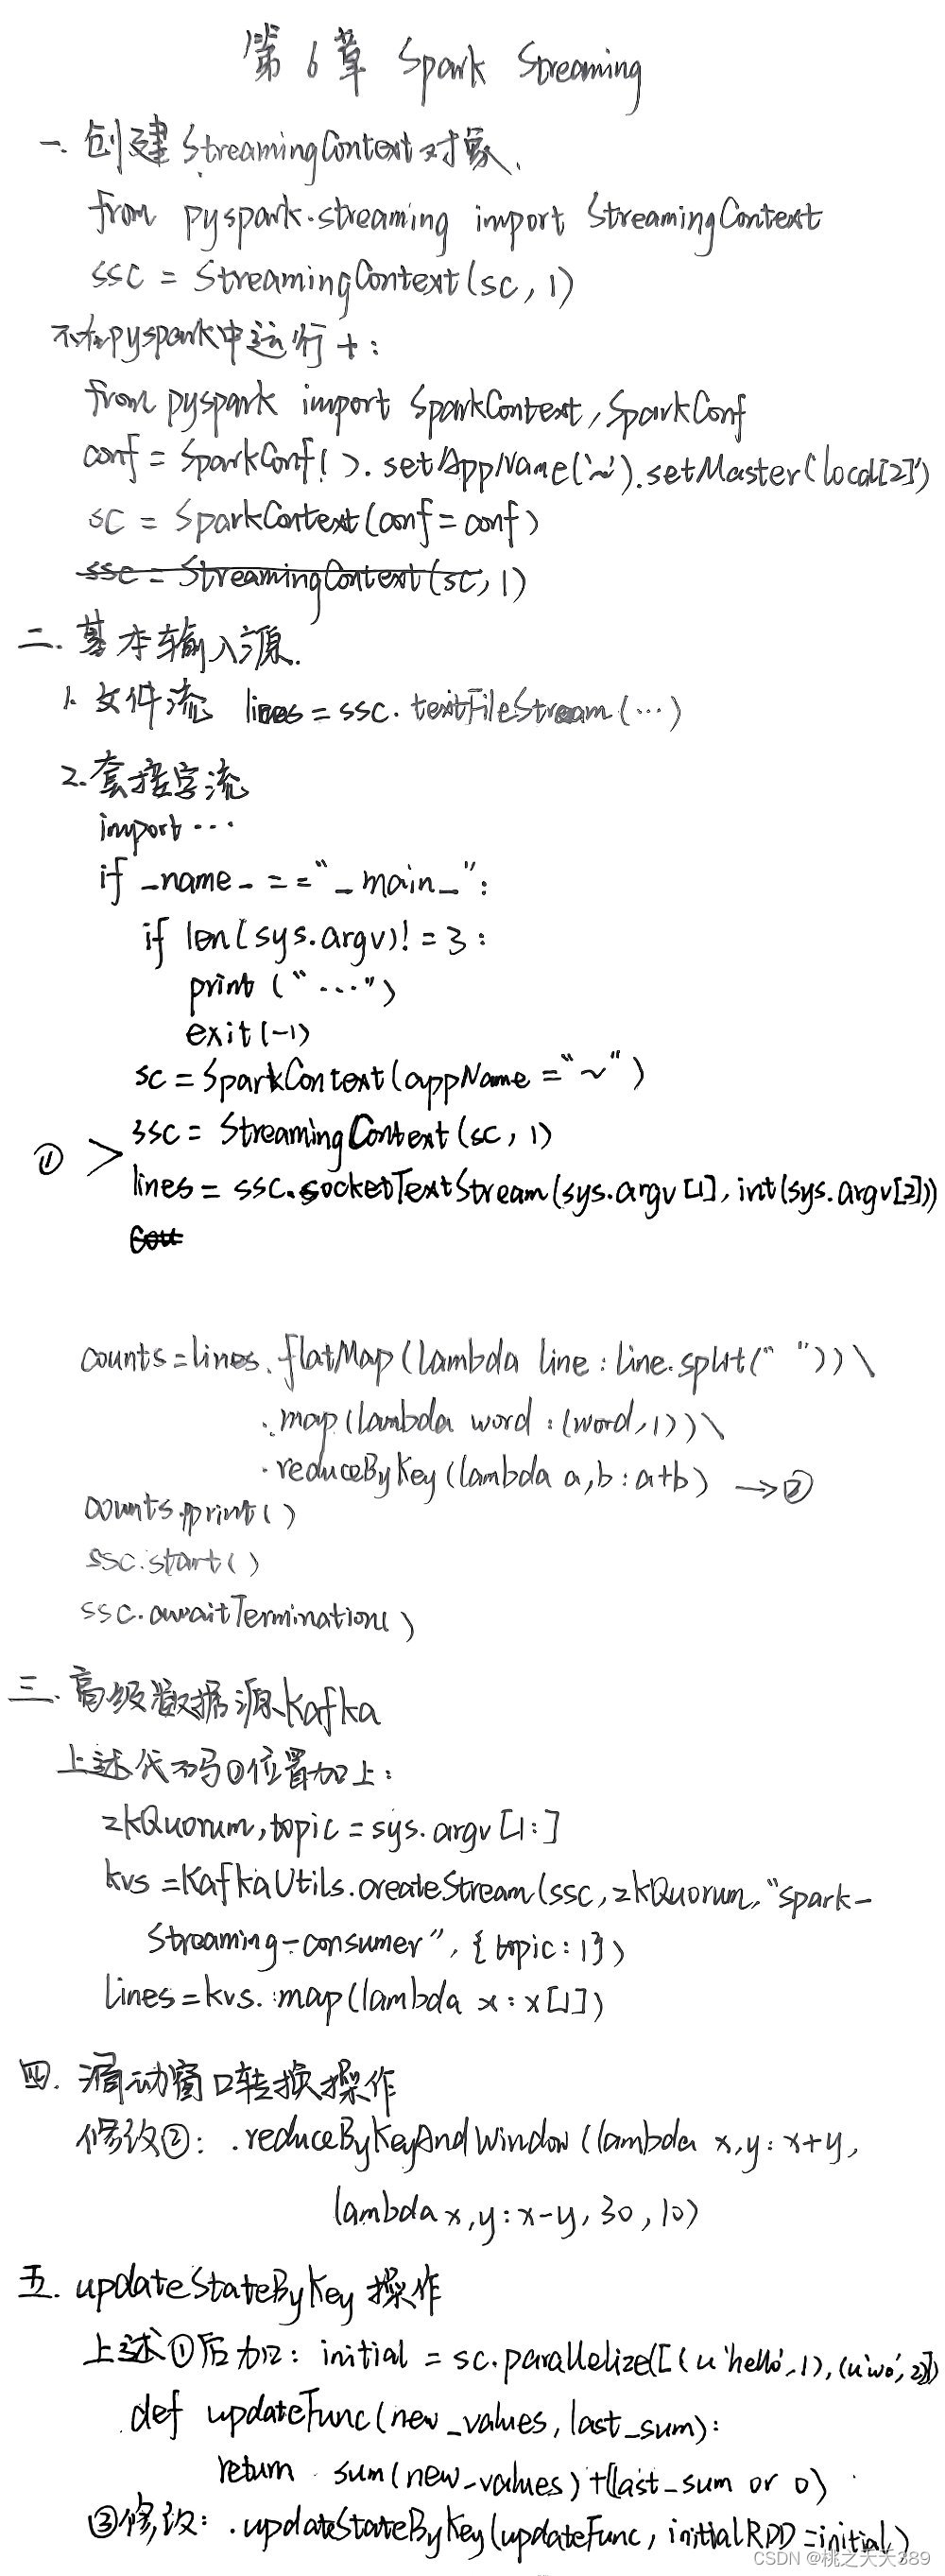 第6章 Spark Streaming
一. 创建StreamingContext对象.
from pyspark.streaming import StreamingContext
ssc = StreamingContext(sc, 1)
不在pyspark中运行+:
from pyspark import SparkContext, SparkConf
conf = SparkConf( ). setAppName('~').setMaster('local[2]')
sc = SparkContext(conf=conf)
ssc = StreamingContext(sc, 1)
二. 基本输入源.
1. 文件流 lines = ssc. textFileStream(...)
2. 套接字流
import ...
if _name_ == "_main_":
if len(sys.argv)! = 3 :
print ("...")
exit(-1)
sc = SparkContext(appName = "~")
ssc = StreamingContext(sc, 1)
① >
lines = ssc.socketTextStream(sys.argv[1], int(sys.argv[2]))
Cou
counts = lines. flatMap(lambda line : line.split(" ")) \
.map(lambda word : (word, 1)) \
.reduceByKey(lambda a, b : a+b) → ②
counts.pprint( )
ssc.start( )
ssc.awaitTermination( )
三. 高级数据源Kafka
上述代码①位置加上:
zkQuorum, topic = sys. argv [1: ]
kvs = KafkaUtils.createStream(ssc, zkQuorum, "spark-
streaming-consumer", {topic: 1})
lines = kvs. map(lambda x: x[1])
四. 滑动窗口转换操作
修改②: .reduceByKeyAndWindow (lambda x, y: x+y,
lambda x, y: x-y, 30, 10)
五. updateStateByKey 操作
上述①后加: initial = sc.parallelize([(u'hello', 1), (u'wo', 2)])
def updateFunc(new_values, last_sum):
return sum(new_values) + (last_sum or 0)
③修改: .updateStateByKey(updateFunc, initialRDD=initial)
CSDN @桃之夭夭389